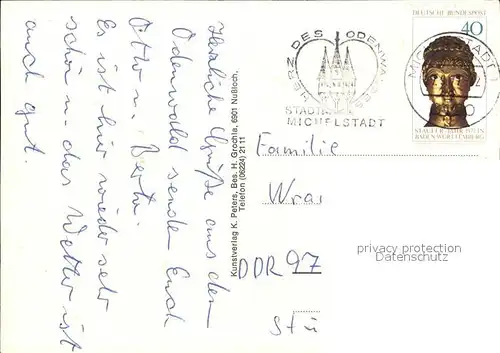 Herzliche Grüße aus dem
Odenwald senden Euch
Otto u. Berta.
Es ist hier wieder sehr
schön u. das Wetter ist
auch gut.
Kunstverlag K. Peters, Bes. H. Grochla, 6901 Nußloch,
Telefon (06224) 2111
HERZ DES ODENWALDES
STADT
MICHELSTADT
DEUTSCHE BUNDESPOST
40
STAUFER-JAHR 1977 IN
BADEN-WÜRTTEMBERG
MICHELSTADT
Familie
Wrai
DDR 97
Stü
privacy protection
Datenschutz